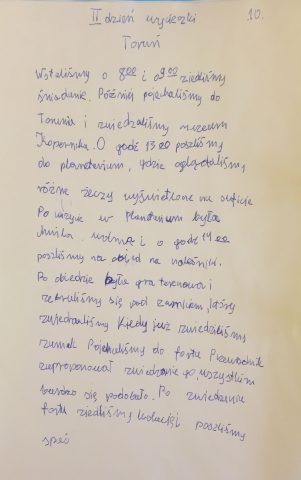 II dzień wycieczki 10.
Toruń
Wstaliśmy o 8:00 i o 9:00 ziedliśmy
śniadanie. Później pojechaliśmy do
Torunia i zwiedzaliśmy muzeum
Kopernika. O godź 13 00 poszliśmy
do planetarium, gdzie oglądaliśmy
różne rzeczy wyświetlone na suficie
Po wizycie w planetarium była
chwilka wolna i o godź 14 00
poszliśmy na obiad na naleśniki.
Po obiedzie była gra terenowa i
zebraliśmy się pod zamkiem, który
zwiedzaliśmy Kiedy już zwiedziliśmy
zamek Pojechaliśmy do fortu Przewodnik
zaproponował zwiedzanie go, wszystkim
bardzo się podobało. Po zwiedzaniu
fortu ziedliśmy kolację i poszliśmy
spać